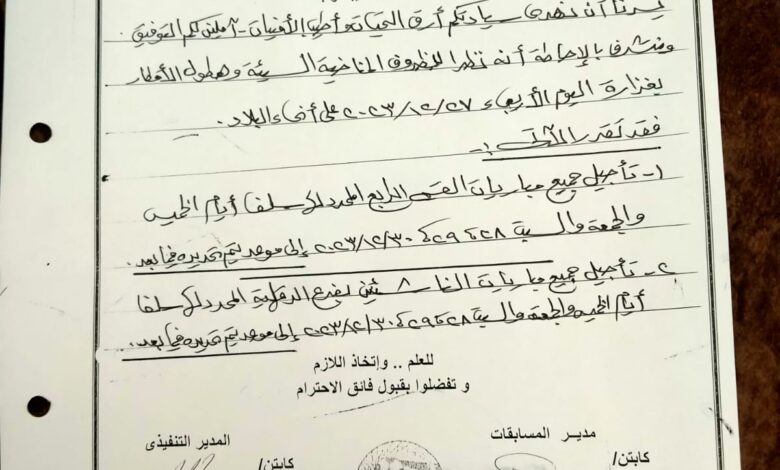 يسرنا أن نهدى سيادتكم أرق التحيات وأطيب الأمنيات - آملين لكم التوفيق.
ونتشرف بالإحاطة أنه نظرا للظروف المناخية السيئة وهطول الأمطار
بغزارة اليوم الأربعاء ٢٠٢٣/١٢/٢٧ على أنحاء البلاد.
فقد تقرر الآتى :-
١- تأجيل جميع مباريات القسم الرابع المحدد لها سلفا أيام الخميس
والجمعة والسبت ٢٨، ٢٩، ٢٠٢٣/١٢/٣٠ إلى موعد يتم تحديده فيما بعد.
٢- تأجيل جميع مباريات الناشئين بفرع الدقهلية المحدد لها سلفا
أيام الخميس والجمعة والسبت ٢٨، ٢٩، ٢٠٢٣/١٢/٣٠ إلى موعد يتم تحديده فيما بعد.
للعلم .. وإتخاذ اللازم
و تفضلوا بقبول فائق الاحترام
مديـر المسابقات
المدير التنفيذى
كابتن/
كابتن/